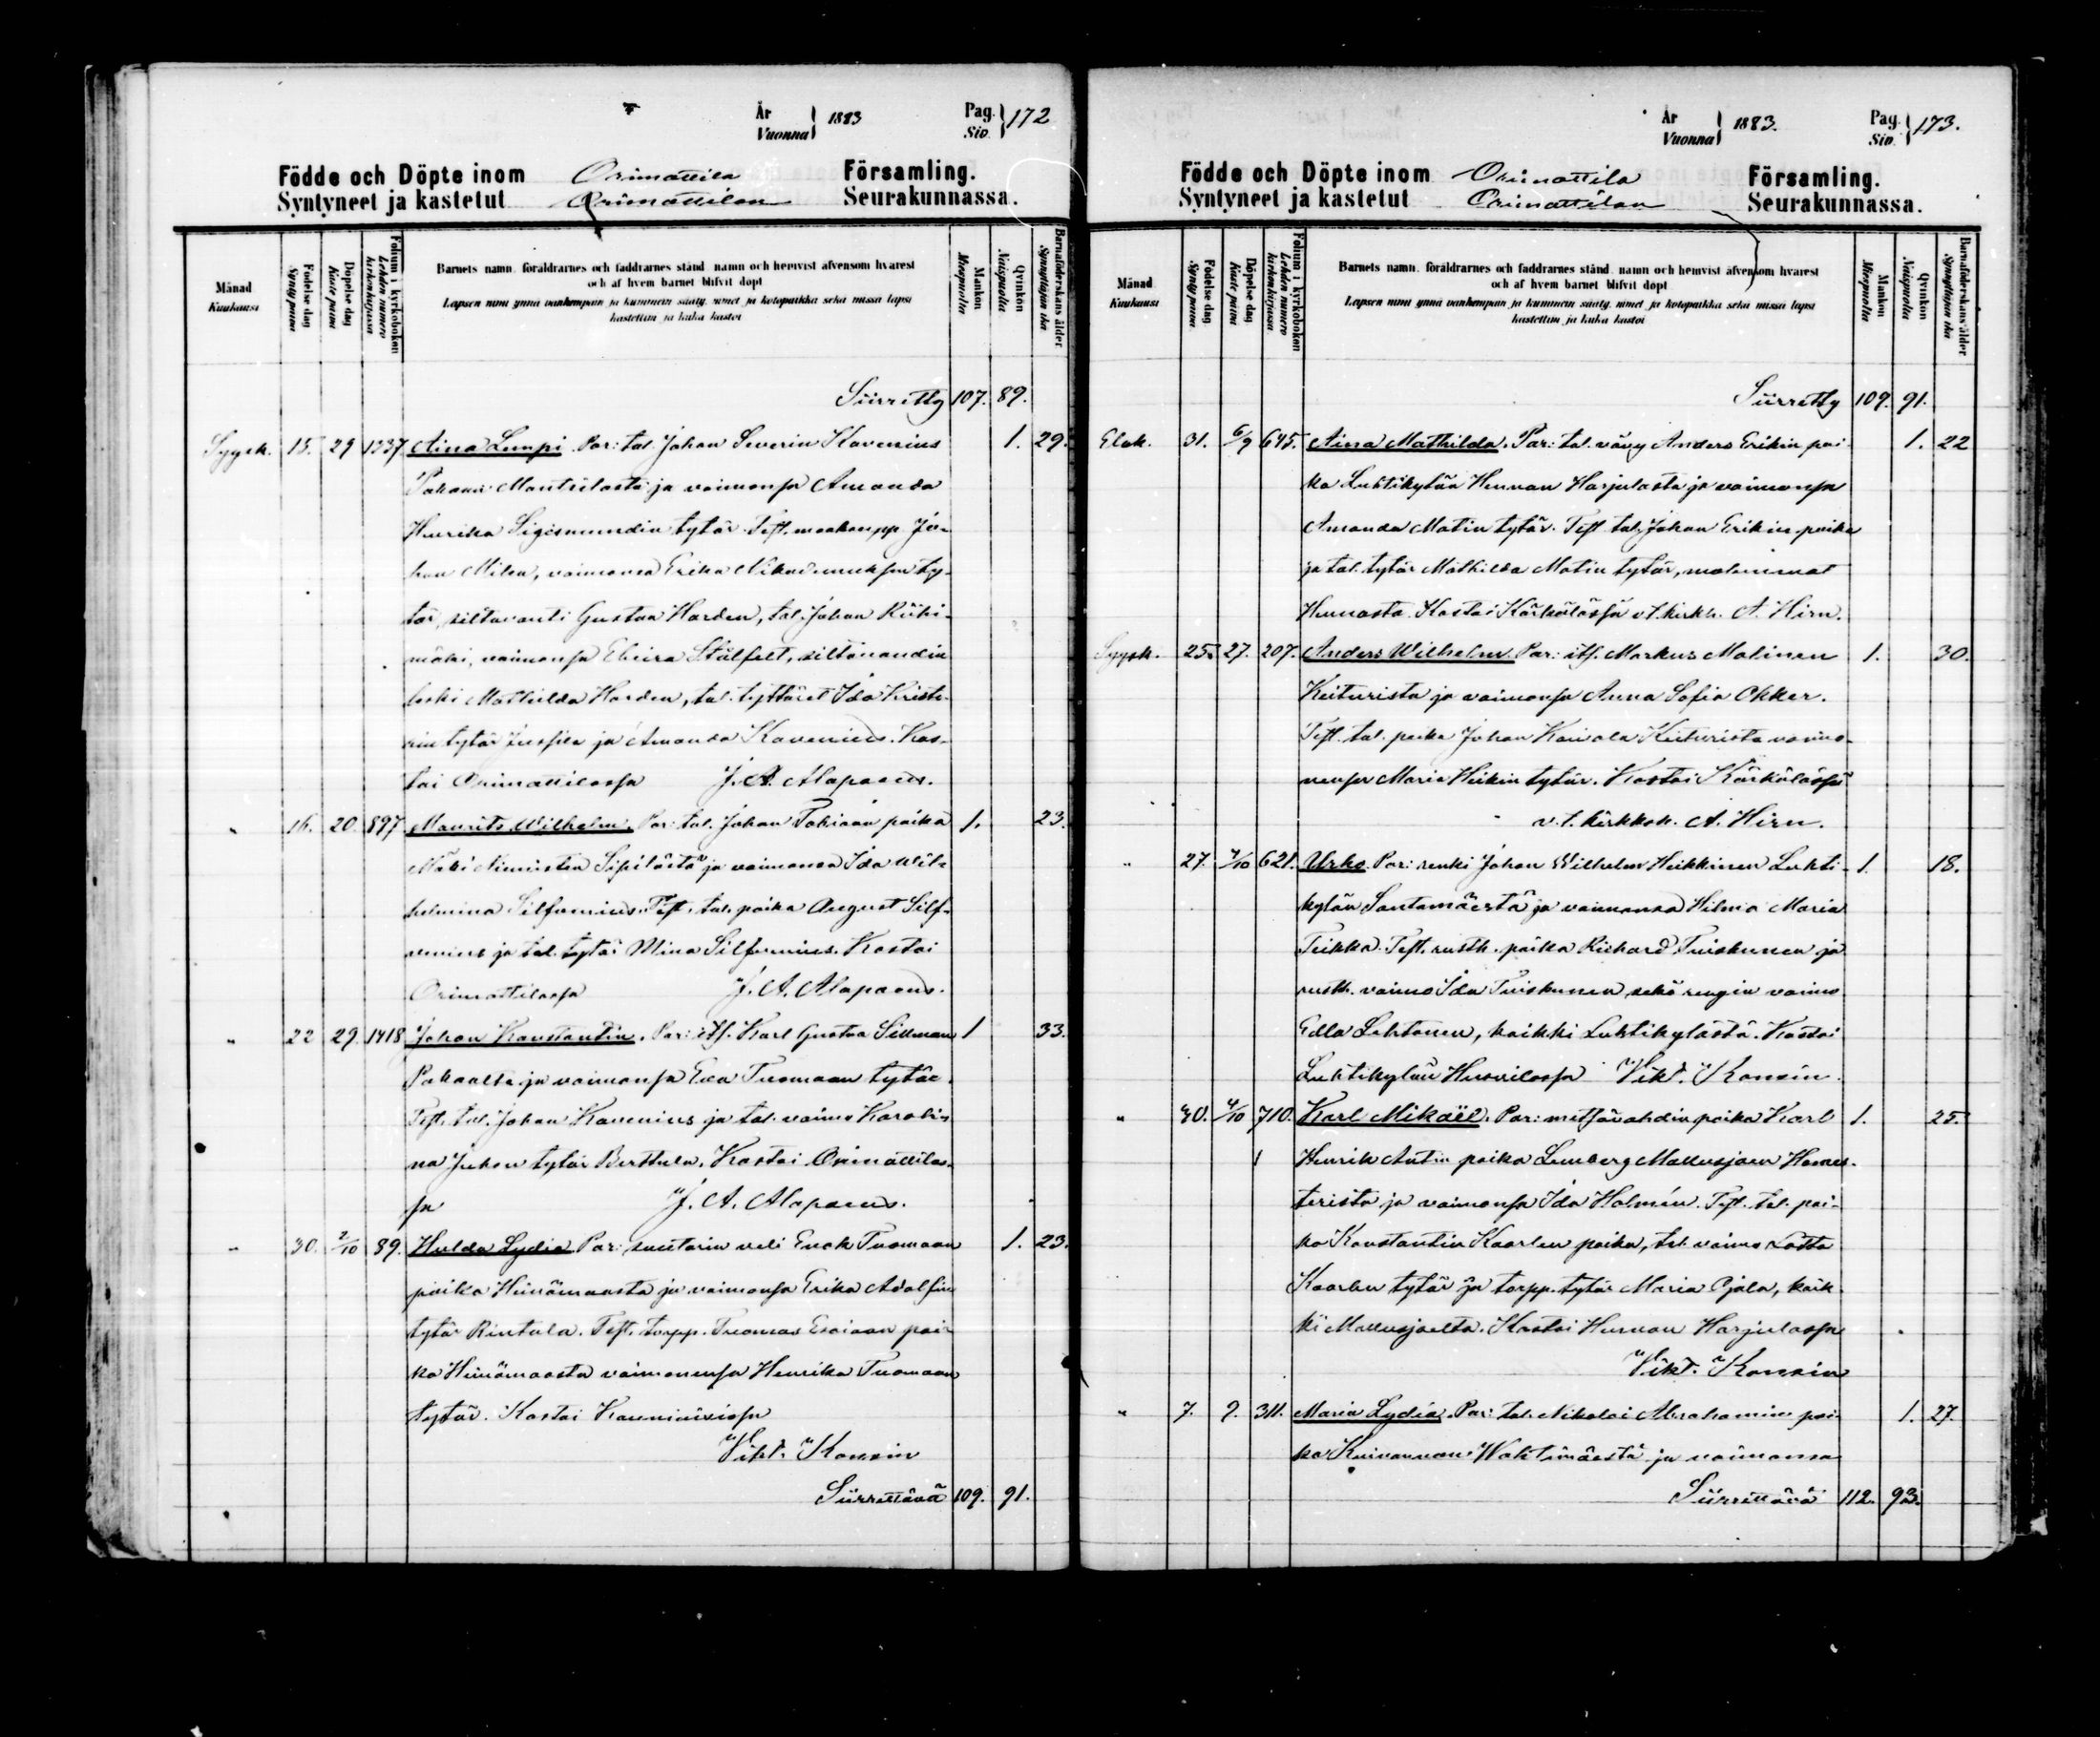 År
Vuonna } 1883
Pag.
Siv. } 172
Födde och Döpte inom Orimattila Församling.
Syntyneet ja kastetut Orimattilan Seurakunnassa.
Månad
Kuukausi
Födelse dag
Synty päivä
Döpelse dag
Kaste päivä
Folium i kyrkoboken
Lehden numero kirkonkirjassa
Barnets namn, föräldrarnes och faddrarnes stånd, namn och hemvist äfvensom hvarest
och af hvem barnet blifvit döpt
Lapsen nimi ynnä vanhempain ja kummein sääty, nimet ja kotopaikka sekä missä lapsi
kastettiin ja kuka kastoi
Mankön
Miespuolia
Qvinkön
Naispuolia
Barnaföderskans ålder
Synnyttäjän ikä
Siirretty 107. 89.
Syysk. 15. 29 1337 Aina Lempi. Par: tal. Johan Severin Kavenius 1. 29.
Pakaan Mantsilasta ja vaimonsa Amanda
Henrika Sigismundin tytär. Test. maakaupp. Jo-
han Milen, vaimonsa Erika Nikodemuksen ty-
tär, siltavouti Gustaa Harden, tal. Johan Riihi-
mäki, vaimonsa Elvira Stålfelt, siltavoudin
leski Mathilda Harden, tal. tyttäret Ida Kriste-
rin tytär Jussila ja Amanda Kavenius. Kas-
toi Orimattilassa J. A. Alopaeus.
" 16. 20. 897 Maurits Wilhelm. Par: tal. Johan Tobiaan poika 1. 23.
Mäki Niinistön Sipilästä ja vaimonsa Ida Wil-
helmina Silfvenius. Test. tal. poika August Silf-
venius ja tal. tytär Mina Silfvenius. Kastoi
Orimattilassa J. A. Alopaeus.
" 22 29. 1418 Johan Konstantin. Par: its. Karl Gustaa Sillman 1 33.
Pakaalta ja vaimonsa Eva Tuomaan tytär.
Test. tal. Johan Kavenius ja tal. vaimo Karoli-
na Juhon tytär Berttula. Kastoi Orimattilas-
sa J. A. Alopaeus.
" 30. 2/10 89. Hulda Lydia. Par: suutarin veli Enok Tuomaan 1. 23.
poika Heinämaasta ja vaimonsa Erika Adolfin
tytär Rintala. Test. torpp. Tuomas Esaiaan poi-
ka Heinämaasta vaimonensa Henrika Tuomaan
tytär. Kastoi
Vikt. Konsin
Siirrettävä 109. 91.
År
Vuonna } 1883.
Pag.
Siv. } 173.
Födde och Döpte inom Orimattila Församling.
Syntyneet ja kastetut Orimattilan Seurakunnassa.
Månad
Kuukausi
Födelse dag
Synty päivä
Döpelse dag
Kaste päivä
Folium i kyrkoboken
Lehden numero kirkonkirjassa
Barnets namn, föräldrarnes och faddrarnes stånd, namn och hemvist äfvensom hvarest
och af hvem barnet blifvit döpt
Lapsen nimi ynnä vanhempain ja kummein sääty, nimet ja kotopaikka sekä missä lapsi
kastettiin ja kuka kastoi
Mankön
Miespuolia
Qvinkön
Naispuolia
Barnaföderskans ålder
Synnyttäjän ikä
Siirretty 109. 91.
Elok. 31. 6/9 645. Aina Mathilda. Par: tal. vävy Anders Erikin poi- 1. 22
ka Luhtikylän Hennan Harjulasta ja vaimonsa
Amanda Matin tytär. Test. tal. Johan Erikin poika
ja tal. tytär Mathilda Matin tytär, molemmat
Hennasta. Kastoi Kärkölässä v.t. kirkh. A. Hirn.
Syysk. 25. 27. 207. Anders Wilhelm. Par: its. Markus Malinen 1. 30.
Keiturista ja vaimonsa Anna Sofia Okker.
Test. tal. poika Johan Kaivola Keiturista vaimo-
nensa Maria Heikin tytär. Kastoi Kärkölässä
v.t. kirkkoh. A. Hirn.
" 27. 7/10 621. Urho. Par: renki Johan Wilhelm Heikkinen Luhti- 1. 18.
kylän Santamäestä ja vaimonsa Hilma Maria
Teikka. Test. rusth. poika Richard Tuiskunen ja
rusth. vaimo Ida Tuiskunen sekä rengin vaimo
Edla Lehtonen, kaikki Luhtikylästä. Kastoi
Luhtikylän Vikt. Konsin.
" 30. 4/10 710. Karl Mikael. Par: metsävahdin poika Karl 1. 25.
Henrik Antin poika Lemberg Mallusjoen
terista ja vaimonsa Ida Holmén. Test. tal. poi-
ka Konstantin Kaarlen poika, tal. vaimo Lotta
Kaarlen tytär ja torpp. tytär Maria Ojala, kaik-
ki Mallusjoelta. Kastoi Hennan Harjulassa
Vikt. Konsin
" 7. 9. 311. Maria Lydia. Par: tal. Nikolai Abrahamin poi- 1. 27.
ka Kuivannon Wahtimäestä ja vaimonsa
Siirrettävä 112. 93.